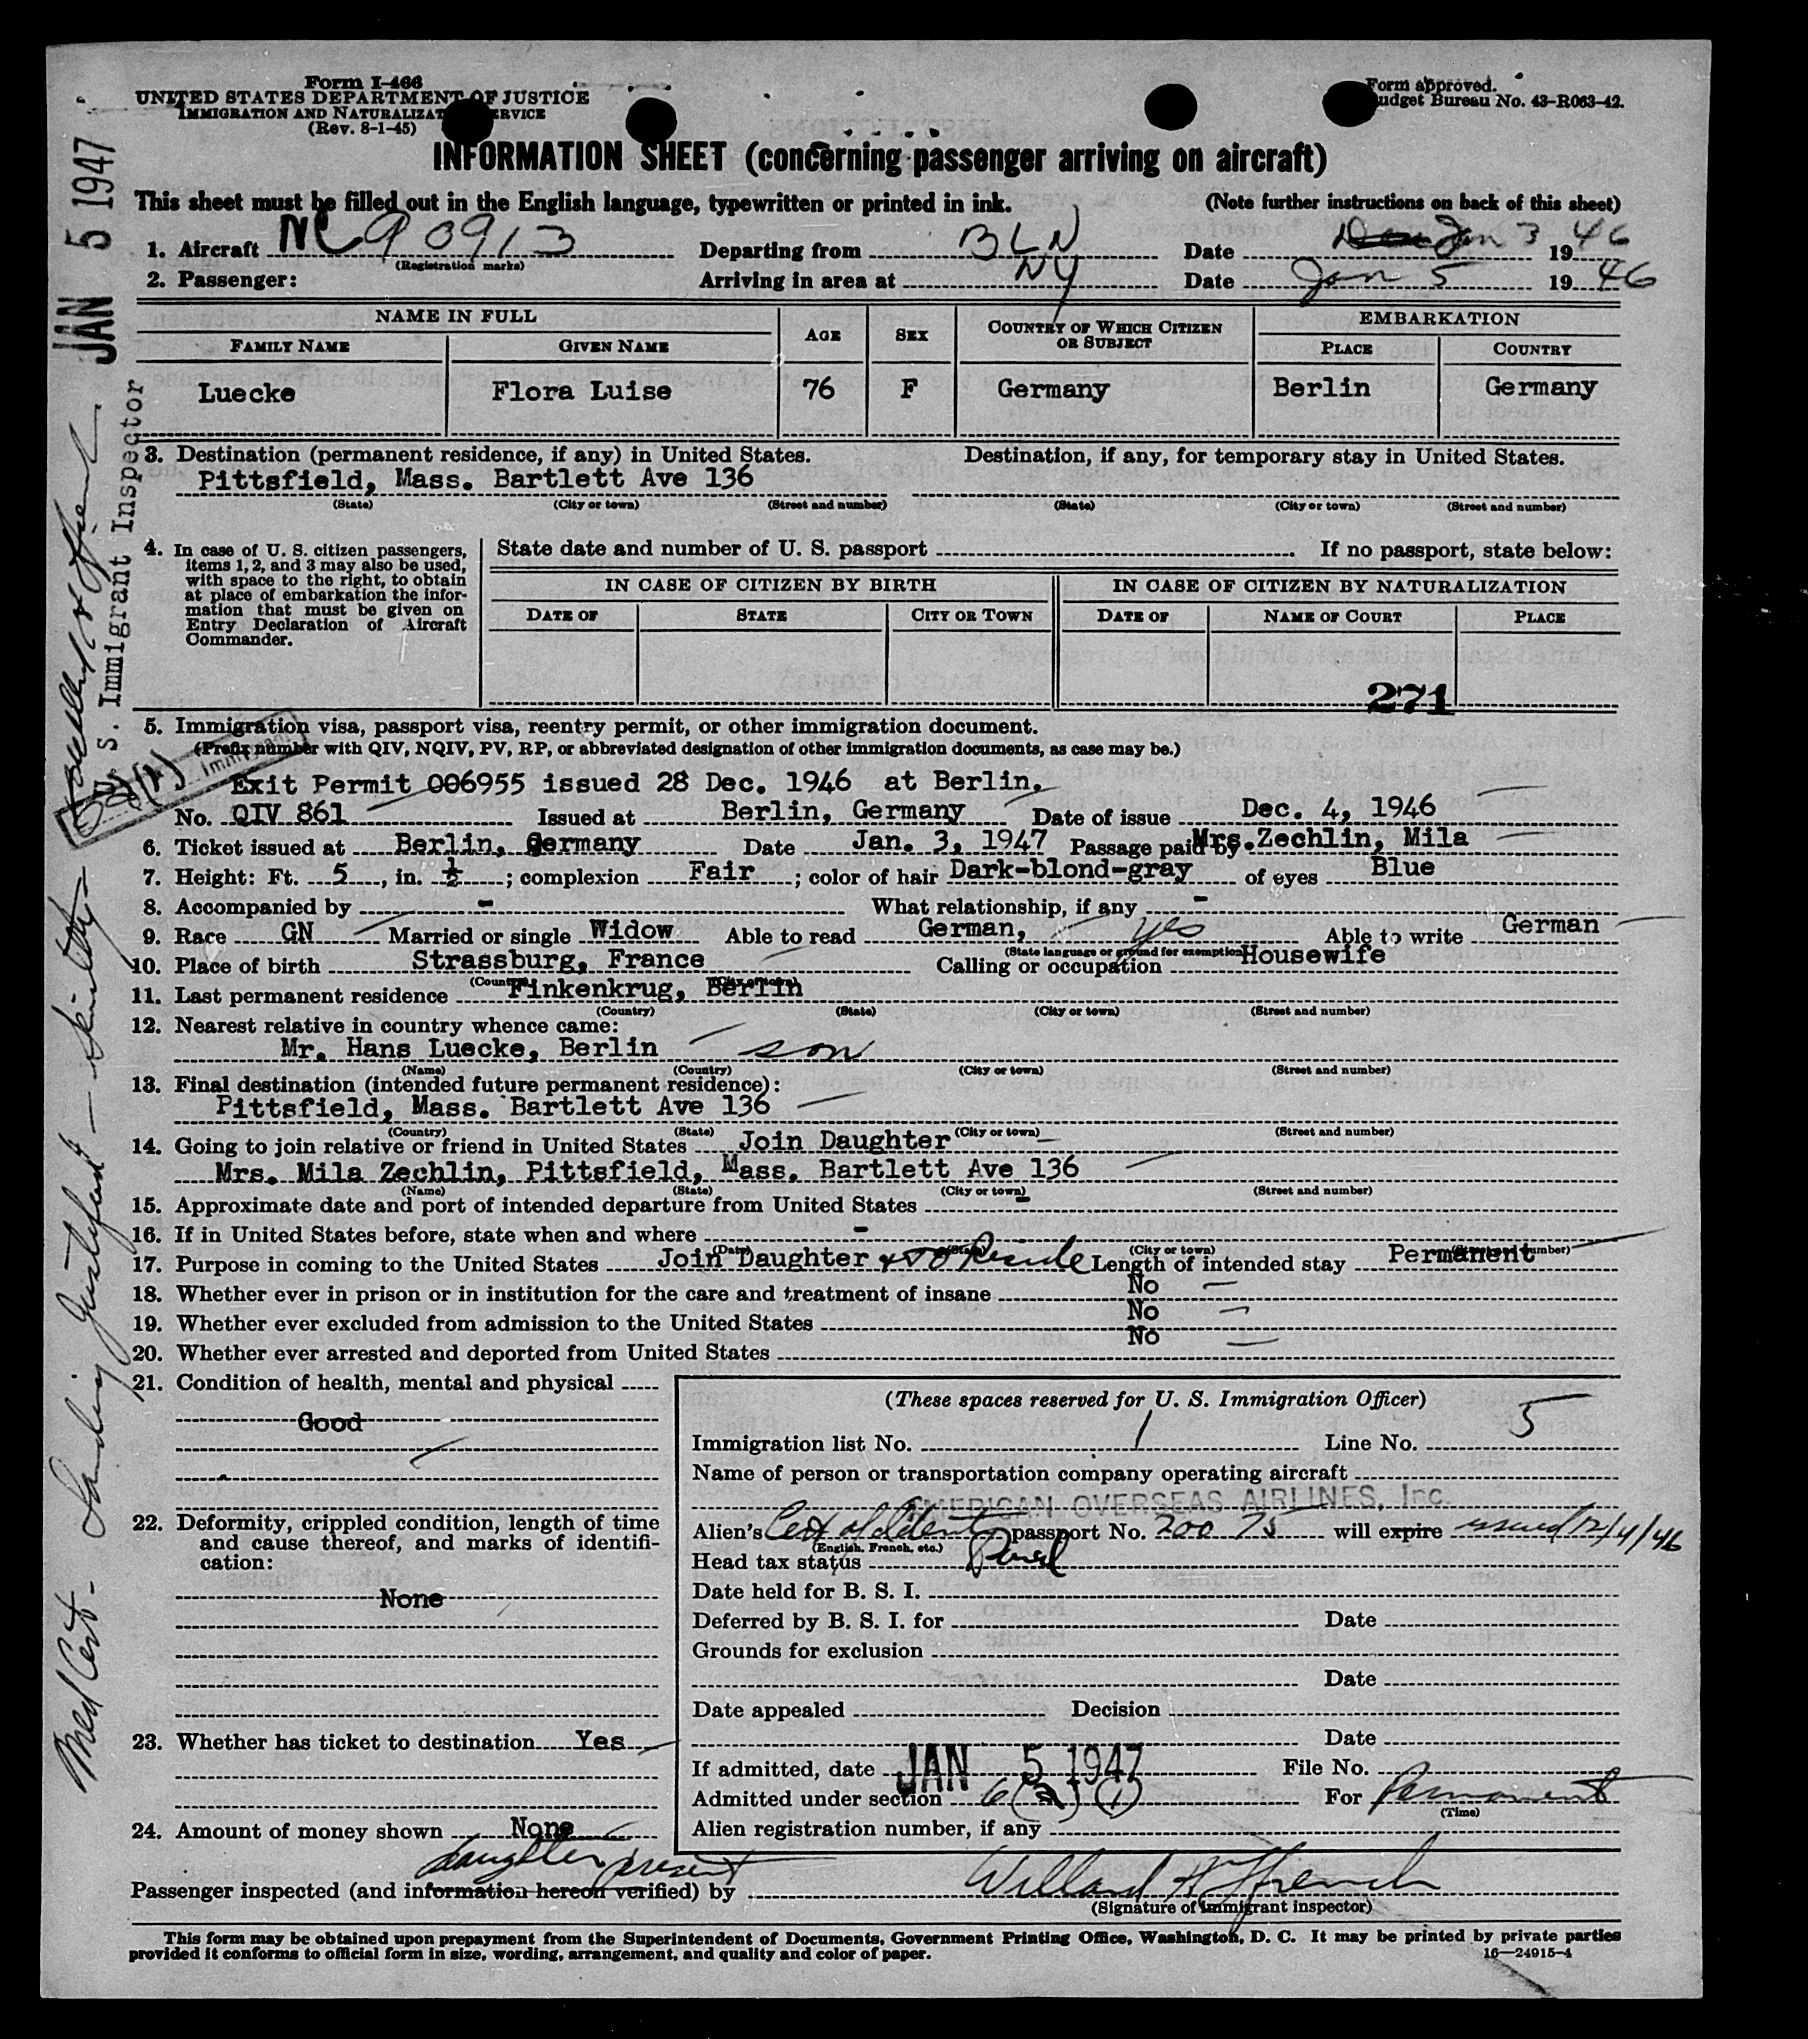 Form I-466
UNITED STATES DEPARTMENT OF JUSTICE
IMMIGRATION AND NATURALIZAT ERVICE
(Rev. 8-1-45)
Form approved.
udget Bureau No. 43-R063-42.
INFORMATION SHEET (concerning passenger arriving on aircraft)
This sheet must be filled out in the English language, typewritten or printed in ink. (Note further instructions on back of this sheet)
1. Aircraft NC 90913 (Registration marks) Departing from BLN Date Jan 3 1946
2. Passenger: Arriving in area at NY Date Jan 5 1946
NAME IN FULL AGE SEX COUNTRY OF WHICH CITIZEN OR SUBJECT EMBARKATION
FAMILY NAME GIVEN NAME PLACE COUNTRY
Luecke Flora Luise 76 F Germany Berlin Germany
3. Destination (permanent residence, if any) in United States. Destination, if any, for temporary stay in United States.
Pittsfield, Mass. Bartlett Ave 136
(State) (City or town) (Street and number) (State) (City or town) (Street and number)
4. In case of U. S. citizen passengers, items 1, 2, and 3 may also be used, with space to the right, to obtain at place of embarkation the information that must be given on Entry Declaration of Aircraft Commander.
State date and number of U. S. passport . If no passport, state below:
IN CASE OF CITIZEN BY BIRTH IN CASE OF CITIZEN BY NATURALIZATION
DATE OF STATE CITY OR TOWN DATE OF NAME OF COURT PLACE
271
5. Immigration visa, passport visa, reentry permit, or other immigration document.
(Prefix number with QIV, NQIV, PV, RP, or abbreviated designation of other immigration documents, as case may be.)
Exit Permit 006955 issued 28 Dec. 1946 at Berlin.
No. QIV 861 Issued at Berlin, Germany Date of issue Dec. 4, 1946
6. Ticket issued at Berlin, Germany Date Jan. 3, 1947 Passage paid by Mrs.Zechlin, Mila
7. Height: Ft. 5, in. ½; complexion Fair; color of hair Dark-blond-gray of eyes Blue
8. Accompanied by - What relationship, if any -
9. Race GN Married or single Widow Able to read German, yes Able to write German
(State language or ground for exemption)
10. Place of birth Strassburg, France Calling or occupation Housewife
(Country) (City or town)
11. Last permanent residence Finkenkrug, Berlin
(Country) (State) (City or town) (Street and number)
12. Nearest relative in country whence came:
Mr. Hans Luecke, Berlin son
(Name) (Country) (City or town) (Street and number)
13. Final destination (intended future permanent residence):
Pittsfield, Mass. Bartlett Ave 136
(Country) (State) (City or town) (Street and number)
14. Going to join relative or friend in United States Join Daughter
Mrs. Mila Zechlin, Pittsfield, Mass. Bartlett Ave 136
(Name) (State) (City or town) (Street and number)
15. Approximate date and port of intended departure from United States -
16. If in United States before, state when and where -
(Date) (State) (City or town) (Street and number)
17. Purpose in coming to the United States Join Daughter & to Reside Length of intended stay Permanent
18. Whether ever in prison or in institution for the care and treatment of insane No
19. Whether ever excluded from admission to the United States No
20. Whether ever arrested and deported from United States No
21. Condition of health, mental and physical
Good
22. Deformity, crippled condition, length of time and cause thereof, and marks of identification:
None
23. Whether has ticket to destination Yes
24. Amount of money shown None
daughter present
(These spaces reserved for U. S. Immigration Officer)
Immigration list No. 1 Line No. 5
Name of person or transportation company operating aircraft
AMERICAN OVERSEAS AIRLINES, Inc.
Alien's Cert of Identity passport No. 200 75 will expire issued 12/4/46
(English, French, etc.)
Head tax status
Date held for B. S. I.
Deferred by B. S. I. for Date
Grounds for exclusion
Date
Date appealed Decision
Date
If admitted, date JAN 5 1947 File No.
Admitted under section 6 (a) (1) For Permanent
(Time)
Alien registration number, if any
Passenger inspected (and information hereon verified) by Willard A Ffrench
(Signature of immigrant inspector)
This form may be obtained upon prepayment from the Superintendent of Documents, Government Printing Office, Washington, D. C. It may be printed by private parties
provided it conforms to official form in size, wording, arrangement, and quality and color of paper. 16—24915-4
JAN 5 1947
U. S. Immigrant Inspector
Med Cert.